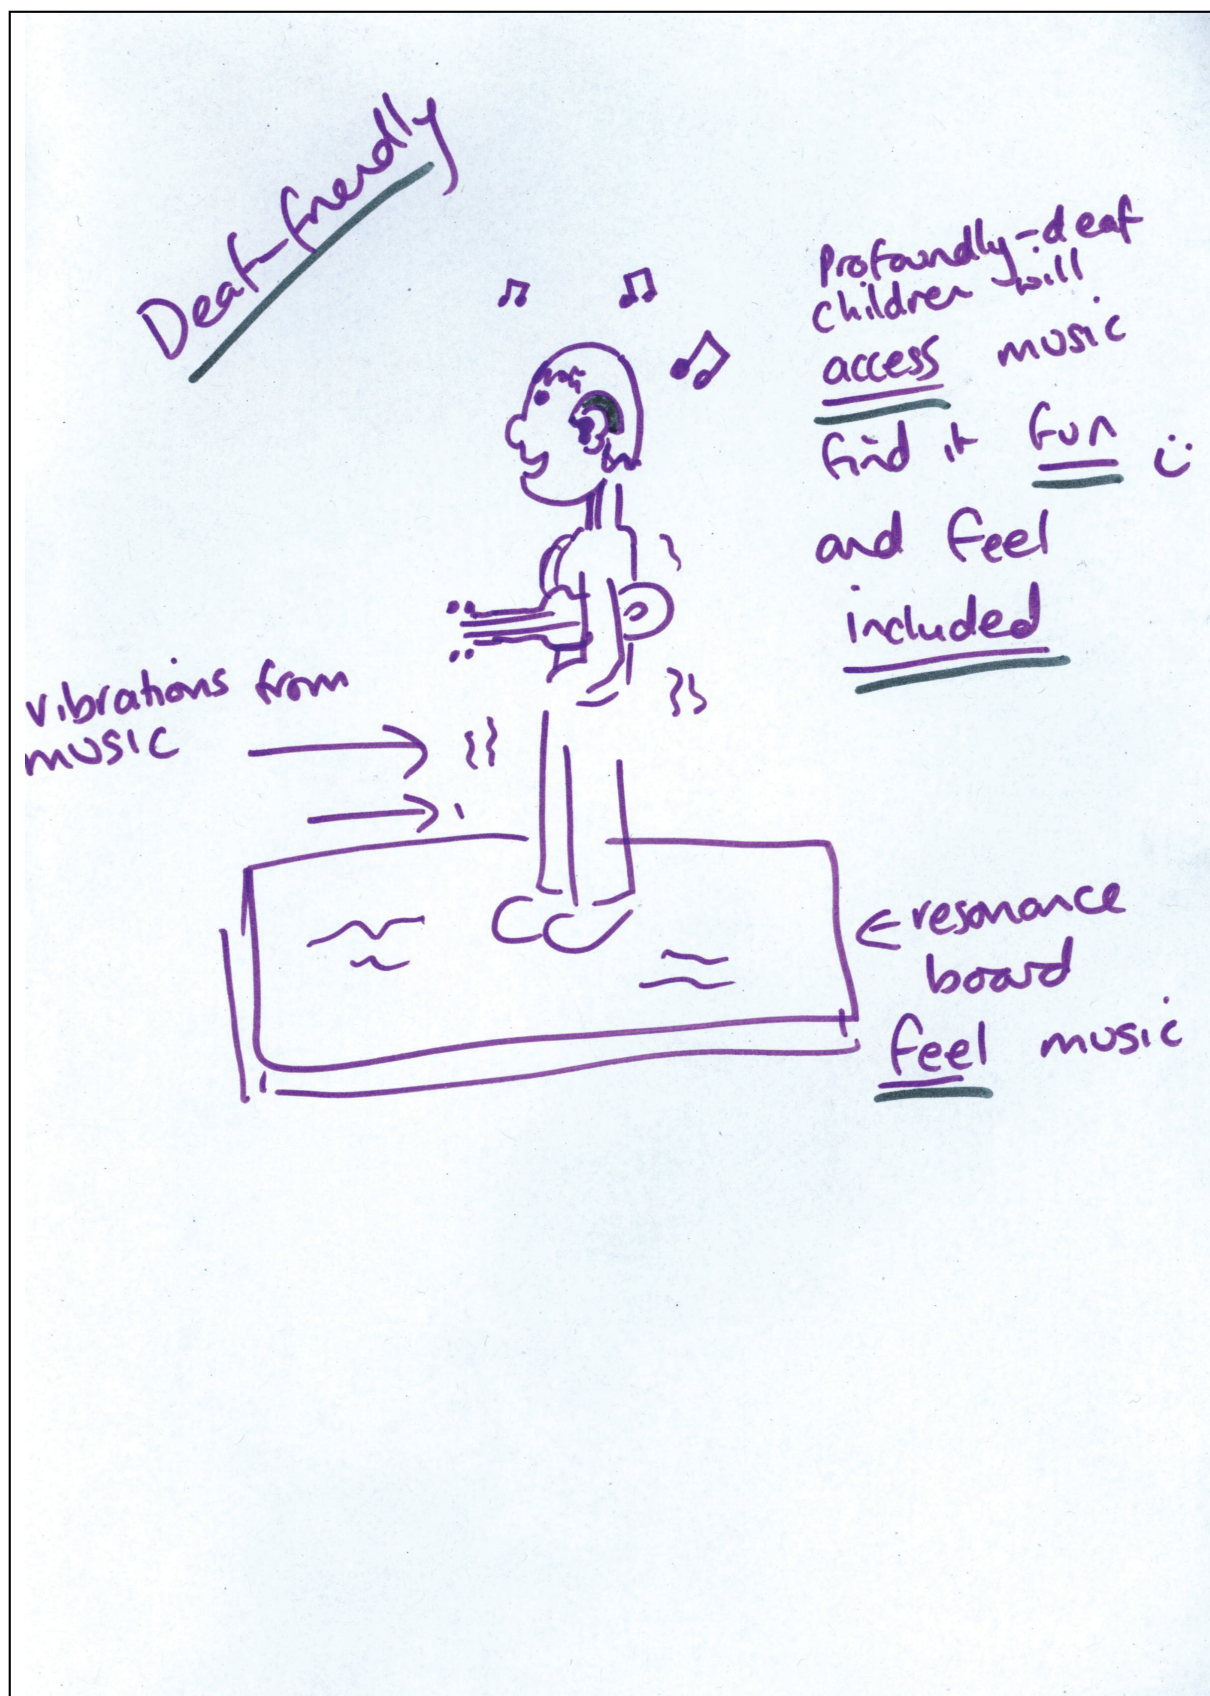 Deaf-friendly
Profoundly-deaf
children will
access music
find it fun
and feel
included
vibrations from
music
resonance
board
feel music